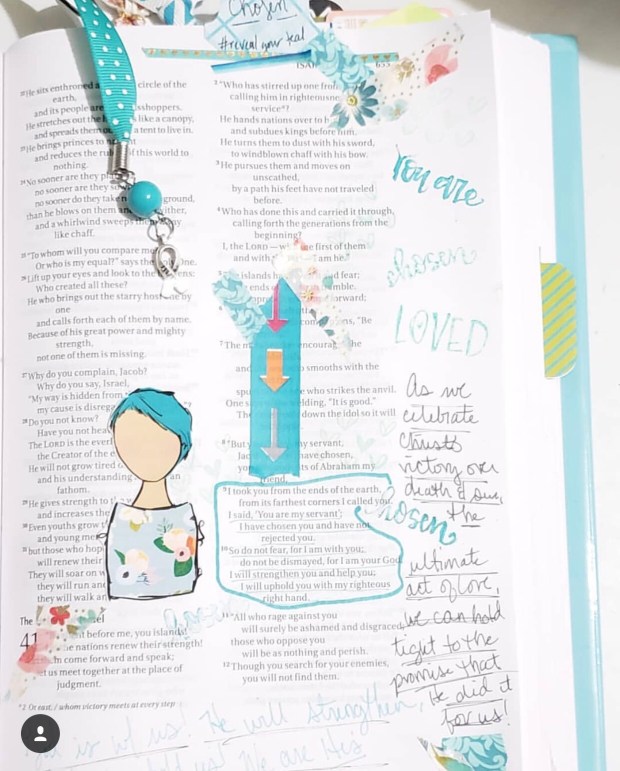 Chosen
#reveal your teal
ISA
655
22 He sits enthroned a circle of the
earth,
and its people are sshoppers.
He stretches out the like a canopy,
and spreads them a tent to live in.
23 He brings princes to
and reduces the ru f this world to
nothing.
24 No sooner are they pl
no sooner are they s
no sooner do they take ground,
than he blows on them an ither,
and a whirlwind sweeps the
like chaff.
25 "To whom will you compare me
Or who is my equal?" says th One.
26 Lift up your eyes and look to the ens:
Who created all these?
He who brings out the starry host e by
one
and calls forth each of them by name.
Because of his great power and mighty
strength,
not one of them is missing.
27 Why do you complain, Jacob?
Why do you say, Israel,
"My way is hidden from
my cause is disrega
28 Do you not know?
Have you not hea
The LORD is the everl
the Creator of the e
He will not grow tired o
and his understanding an
fathom.
29 He gives strength to t
and increases the
30 Even youths grow t
and young me
31 but those who hop
will renew their
They will soar on w
they will run an
they will walk an
The el
41 t before me, you islands!
e nations renew their strength!
m come forward and speak;
et us meet together at the place of
judgment.
2 "Who has stirred up one fro
calling him in righteousne
service?
He hands nations over to h
and subdues kings before him.
He turns them to dust with his sword,
to windblown chaff with his bow.
3 He pursues them and moves on
unscathed,
by a path his feet have not traveled
before.
4 Who has done this and carried it through,
calling forth the generations from the
beginning?
I, the LORD — w e first of them
and with I am he."
5 e islands fear;
ends mble.
opr rward;
com ns, "Be
7 The m encourag he
and smooths with the
spu e who strikes the anvil.
One s elding, "It is good."
The down the idol so it will
8 "But y my servant,
Jac have chosen,
yo s of Abraham my
friend,
9 I took you from the ends of the earth,
from its farthest corners I called you.
I said, 'You are my servant';
I have chosen you and have not
rejected you.
10 So do not fear, for I am with you;
do not be dismayed, for I am your God.
I will strengthen you and help you;
I will uphold you with my righteous
right hand.
11 "All who rage against you
will surely be ashamed and disgraced;
those who oppose you
will be as nothing and perish.
12 Though you search for your enemies,
you will not find them.
*2 Or east, / whom victory meets at every step
You are
chosen
LOVED
As we
celebrate
Christs
victory over
death & sin,
the
Chosen
ultimate
act of love,
we can hold
tight to the
promise that
He did it
for us!
is w/ us! He will strengthen,
us! We are His